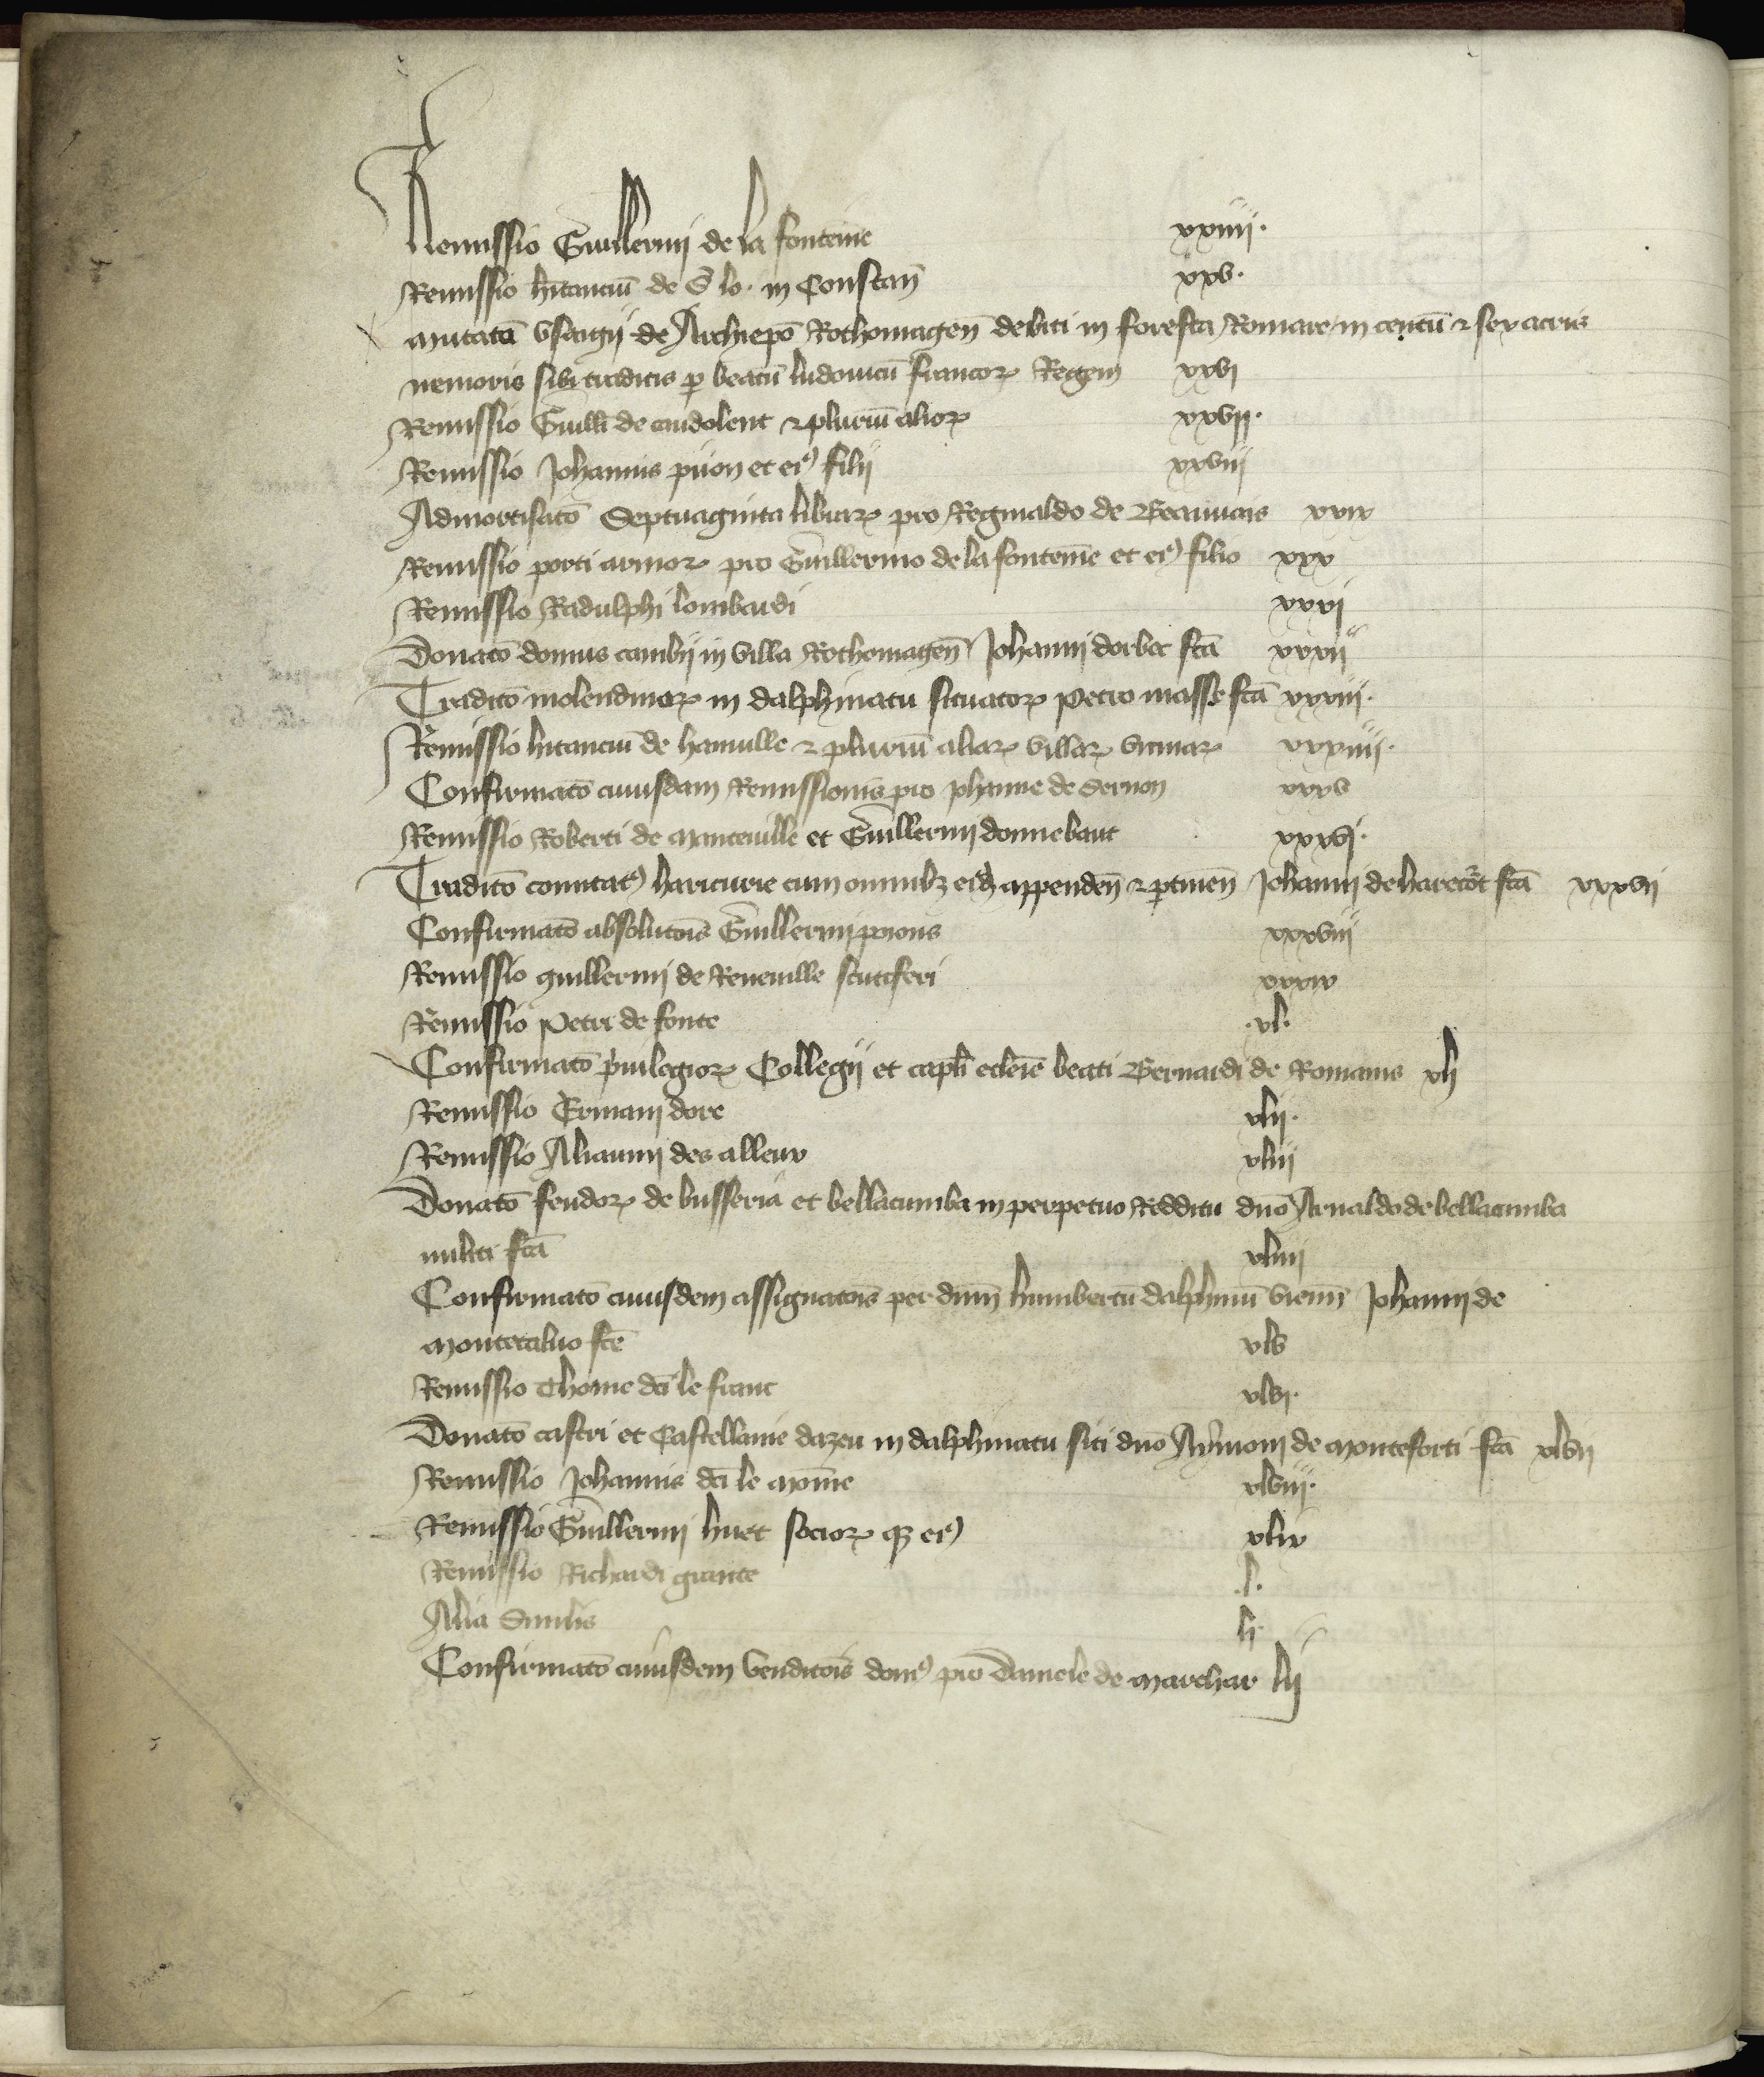 Remissio Guillermi de la fonteine xxiiii.
Remissio hitanciū de S. lo. in Constan̄ xxv.
mutatō vsagii de Archiepō Rothomagen̄ debiti in foresta Romare in centū & sex acris
nemoris sibi traditis p beatū ludouicū francoꝝ Regem xxvi
Remissio Guill̄i de caudolent & pluriū alioꝝ xxvii.
Remissio Johannis piion et eiꝰ filii xxviii
Admortisatō Septuaginta libraꝝ pro Reginaldo de Beauuais xxix
Remissio porti armoꝝ pro Guillermo de la fonteine et eiꝰ filio xxx
Remissio Radulphi lombardi xxxi
Donatō domus cambii in villa Rothomagen̄ Johanni dorbec fc̄ā xxxii
Traditō molendinoꝝ in dalphinatu situatoꝝ Petro masse fc̄ā xxxiii.
Remissio hitanciū de hanuille & pluriū aliaꝝ villaꝝ vicinaꝝ xxxiiii.
Confirmatō cuiusdam Remissionis pro Johanne de Sernon xxxv
Remissio Roberti de manteuille et Guillermi donnebaut xxxvi.
Traditō comitatꝰ haricurie cum omnibꝫ eiꝰdē appenden̄ & ptinen̄ Johanni de harecōt fc̄ā xxxvii
Confirmatō absolutōis Guillermi prioris xxxviii
Remissio guillermi de Reneuille scutiferi xxxix
Remissio Petri de fonte .xl.
Confirmatō priuilegioꝝ Collegii et capl̄i ecl̄eīe beati Bernardi de Romanis xli
Remissio Ermani dore xlii.
Remissio Aliaumi des alleux xliii
Donatō feudoꝝ de busseria et bellacumba in perpetuo Redditu dn̄o Arnaldo de bellacumba
militi fc̄ā xliiii
Confirmatō cuiusdem assignatōis per dn̄m humbertū dalphinū vienn̄ Johanni de
montecaluo fc̄ē xlv
Remissio Thome dc̄i le franc xlvi.
Donatō castri et Castellanie dazeu in dalphinatu siti dn̄o Aymoni de monteforti fc̄ā xlvii
Remissio Johannis dc̄i le moine xlviii.
Remissio Guillermi huet socioꝝ qꝫ eiꝰ xlix
Remissio Richardi grante .l.
Alia Similis li.
Confirmatō cuiusdem venditōis domꝰ pro Daniele de marchar lii